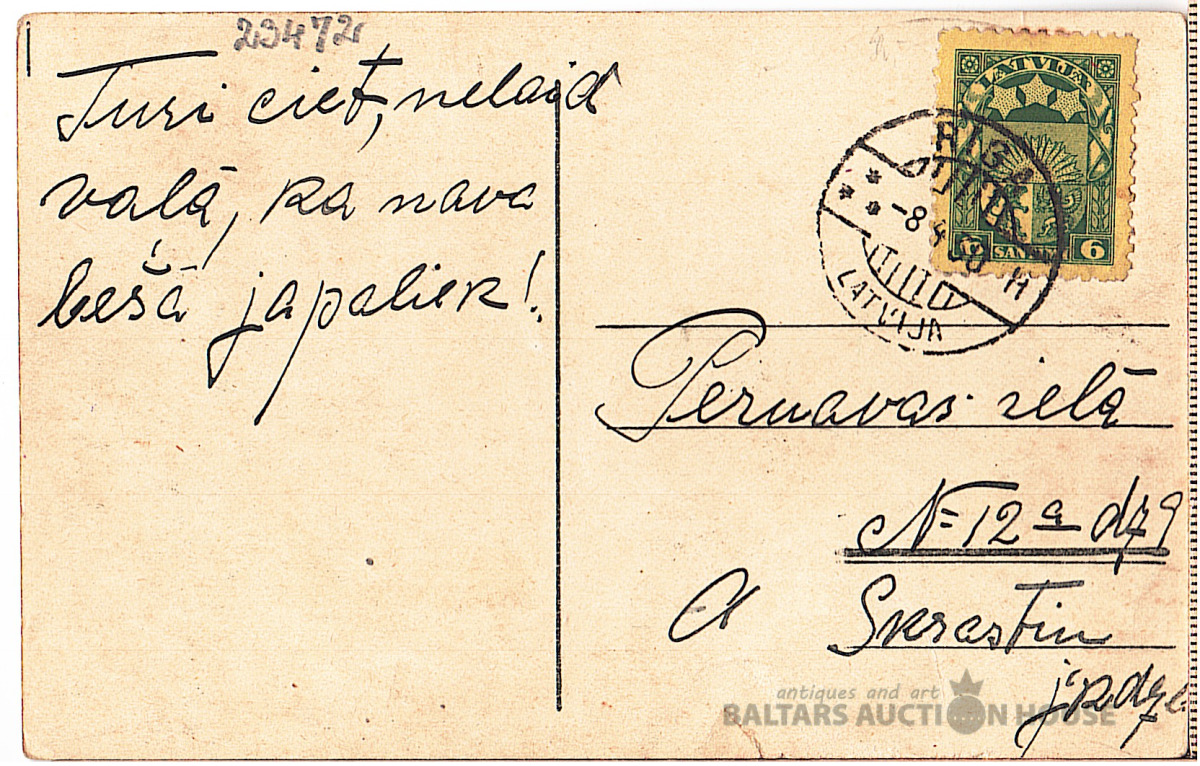 23472
Turi ciet, nelaid
valā, ka nava
bešā japaliek!
LATVIJA
6 SANTIMI 6
RIGA
-8 4 30 H
LATVIJA
Pernavas ielā
N=12a dz 9
A Skrastiņ
jkdze
antiques and art
BALTARS AUCTION HOUSE